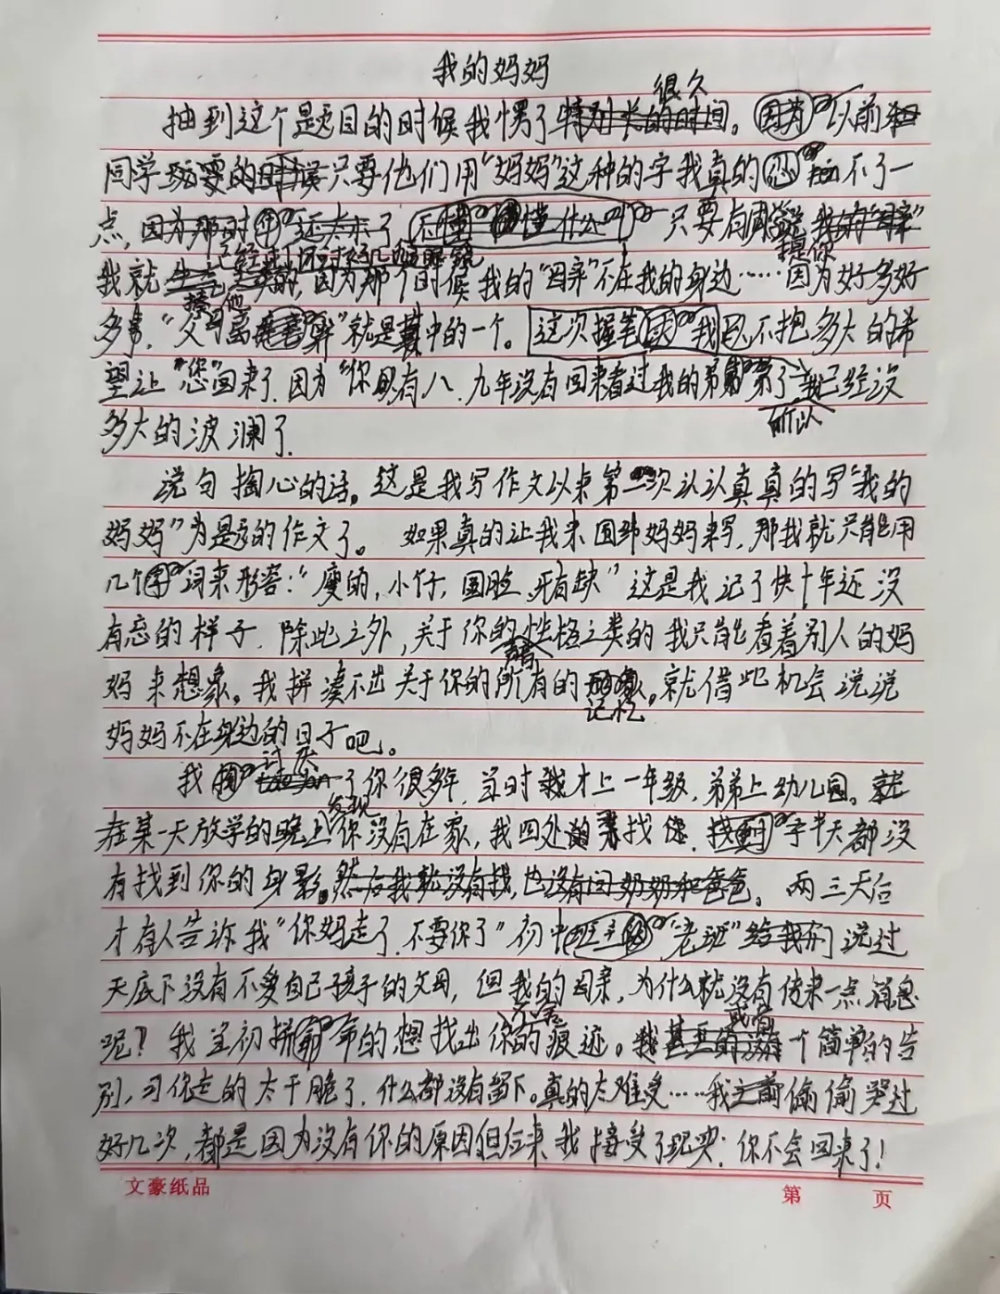 我的妈妈
很久
抽到这个题目的时候我愣了特别长的时间。因为以前和
同学玩耍的时候只要他们用“妈妈”这种的字我真的忍不了一
点,因为那时还太不懂什么 只要有同学说我的“母亲”
已经 提你
我就生气 的,因为那个时候我的“母亲”不在我的身边……因为好多好
多事,“父母离异”就是其中的一个。这次握笔 我 不抱多大的希
望让“您”回来了,因为“你 有八、九年没有回来看过我的弟弟了 我已经没
所以
多大的波澜了
说句掏心的话。这是我写作文以来第一次认认真真的写“我的
妈妈”为题的作文了。如果真的让我来围绕妈妈来写,那我就只能用
几个词来形容:“瘦的,小个, 牙有缺”这是我记了快十年还没
有忘的样子,除此之外,关于你的性格之类的我只能看着别人的妈
妈来想象。我拼凑不出关于你的所有的 。就借此机会说说
记忆
妈妈不在身边的日子吧。
我 了你很多年,当时我才上一年级,弟弟上幼儿园。就
发现
在某一天放学的晚上你没有在家,我四处的 找你,找 半天都没
有找到你的身影。然后我就没有找,也没有问奶奶和爸爸。两三天后
才有人告诉我“你妈走了,不要你了”初中 “老班”给我们说过
天底下没有不爱自己孩子的父母,但我的母亲,为什么就没有传来一点消息
呢?我当初拼命的想找出你的痕迹。我甚至的 个简单的告
或者
别,可你走的太干脆了,什么都没有留下。真的太难受……我之前偷偷哭过
好几次,都是因为没有你的原因但后来我接受了现实:你不会回来了!
文豪纸品
第 页